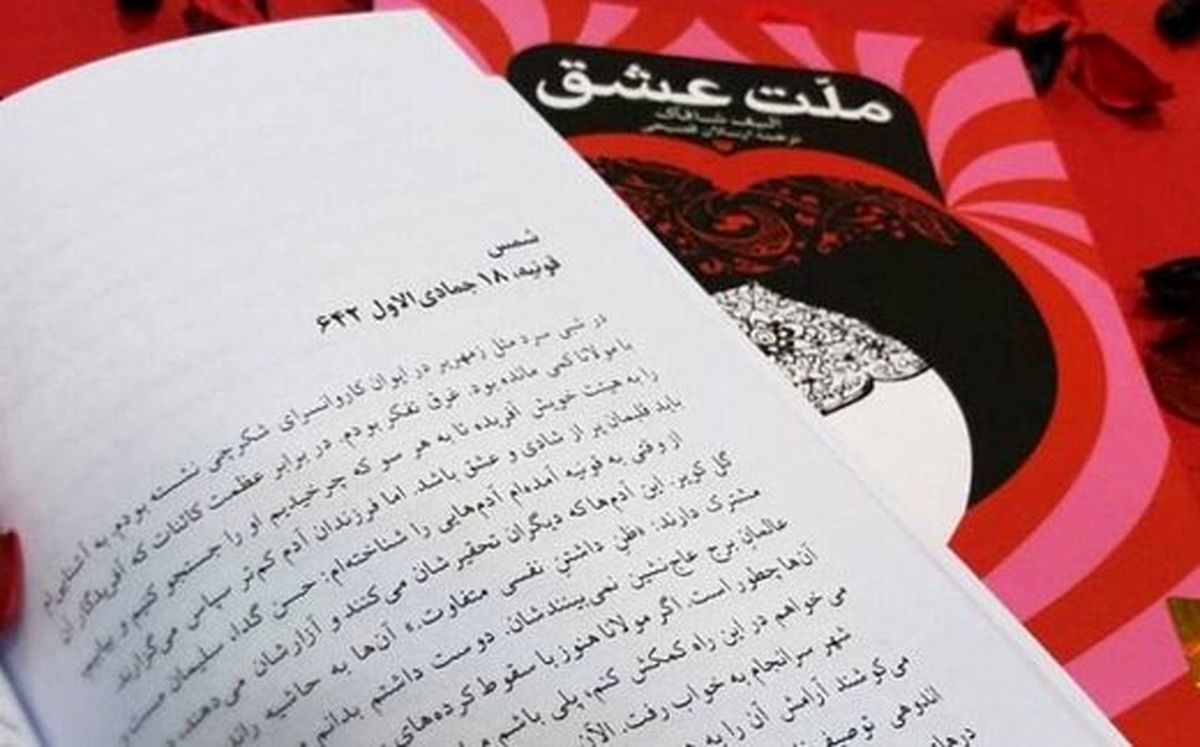 ملّت عشق
الیف شافاک
ترجمه ارسلان فصیحی
شمس
قونیه، ۱۸ جمادی‌الاول ۶۴۲
در شبی سرد مثل زمهریر در ایوان کاروانسرای شکرچی نشسته بودم. به آشنایی‌ام
با مولانا کمی مانده بود. غرق تفکر بودم. در برابر عظمت کائنات که آفریدگار آن
را به هیئت خویش آفریده تا به هر سو که چرخیدیم او را جستجو کنیم و بیابیم
باید قلبمان پر از شادی و عشق باشد. اما فرزندان آدم کم‌تر سپاس می‌گزارند.
از وقتی به قونیه آمده‌ام آدم‌هایی را شناخته‌ام: حسن گدا، سلیمان مست و
گل کویر. این آدم‌ها که دیگران تحقیرشان می‌کنند و آزارشان می‌دهند،
مشترک دارند: «ظن داشتن نفسی متفاوت.» آن‌ها به حاشیه رانده
عالمان برج عاج‌نشین نمی‌بینندشان. دوست داشتم بدانم
آن‌ها چطور است. اگر مولانا هنوز با سقوط کرده‌های
می‌خواهم در این راه کمکش کنم؛ پلی باشم
شهر سرانجام به خواب رفت. الآن
می‌کوشند آرامش آن را به
اندوهی توصیف
درهای